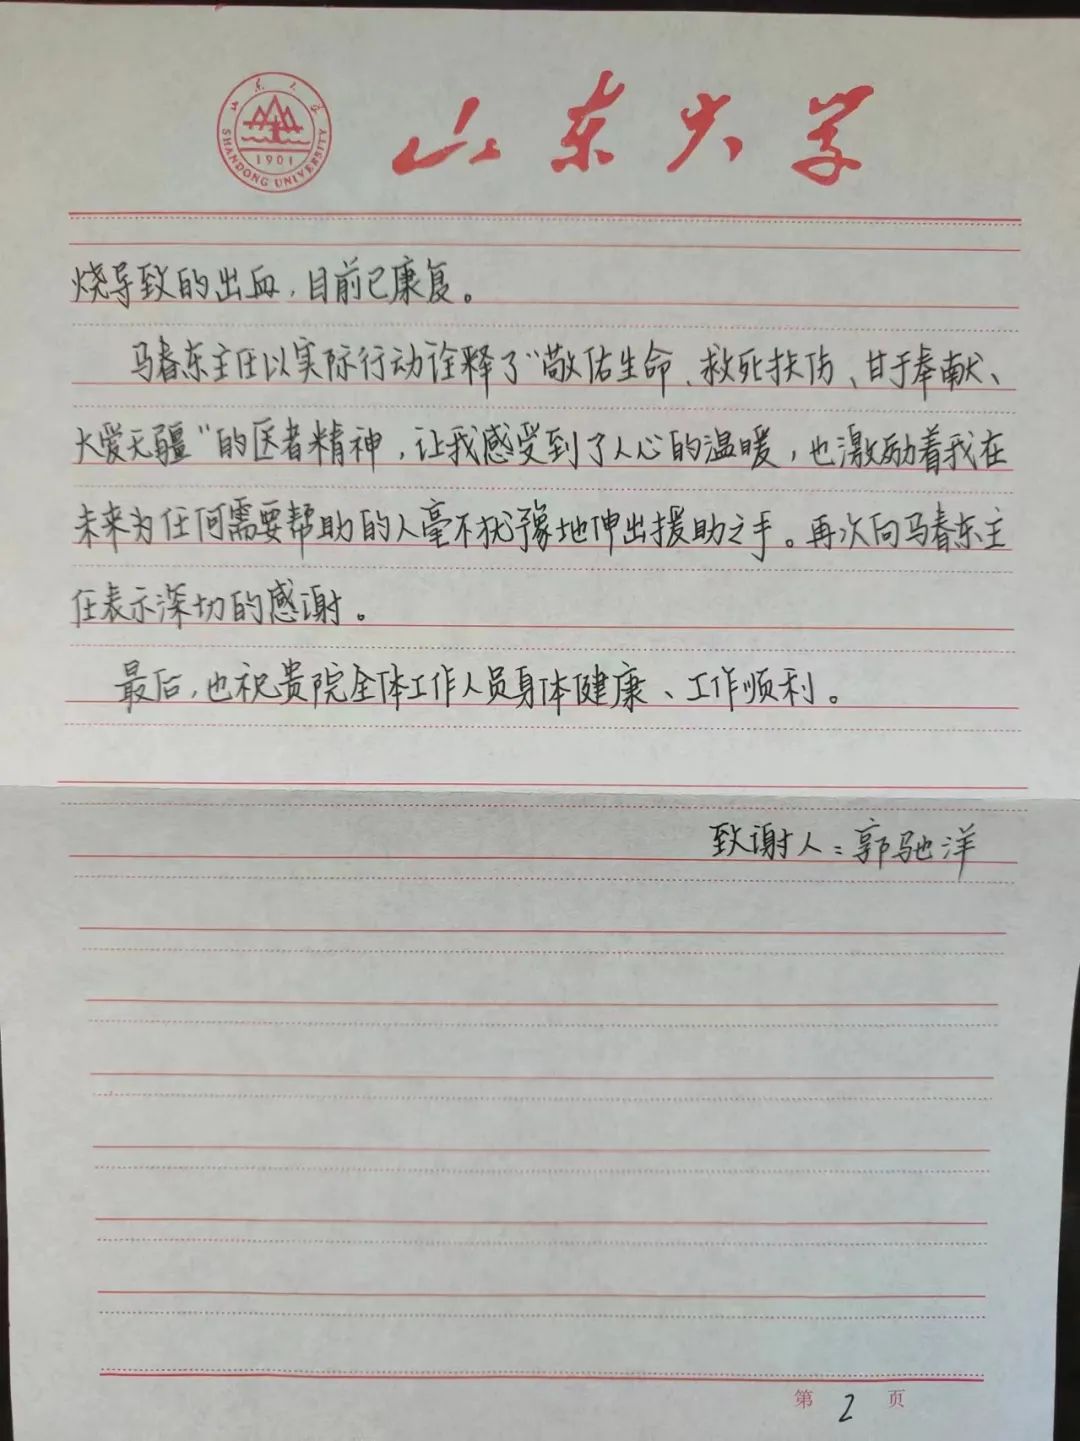 山东大学
山东大学
SHANDONG UNIVERSITY
1901
烧导致的出血，目前已康复。
马春东主任以实际行动诠释了“敬佑生命、救死扶伤、甘于奉献、
大爱无疆”的医者精神，让我感受到了人心的温暖，也激励着我在
未来为任何需要帮助的人毫不犹豫地伸出援助之手。再次向马春东主
任表示深切的感谢。
最后，也祝贵院全体工作人员身体健康、工作顺利。
致谢人：郭驰洋
第 2 页